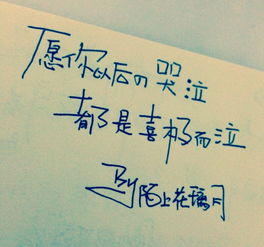 愿你以后の哭泣
都是喜极而泣
By陌上花璃月